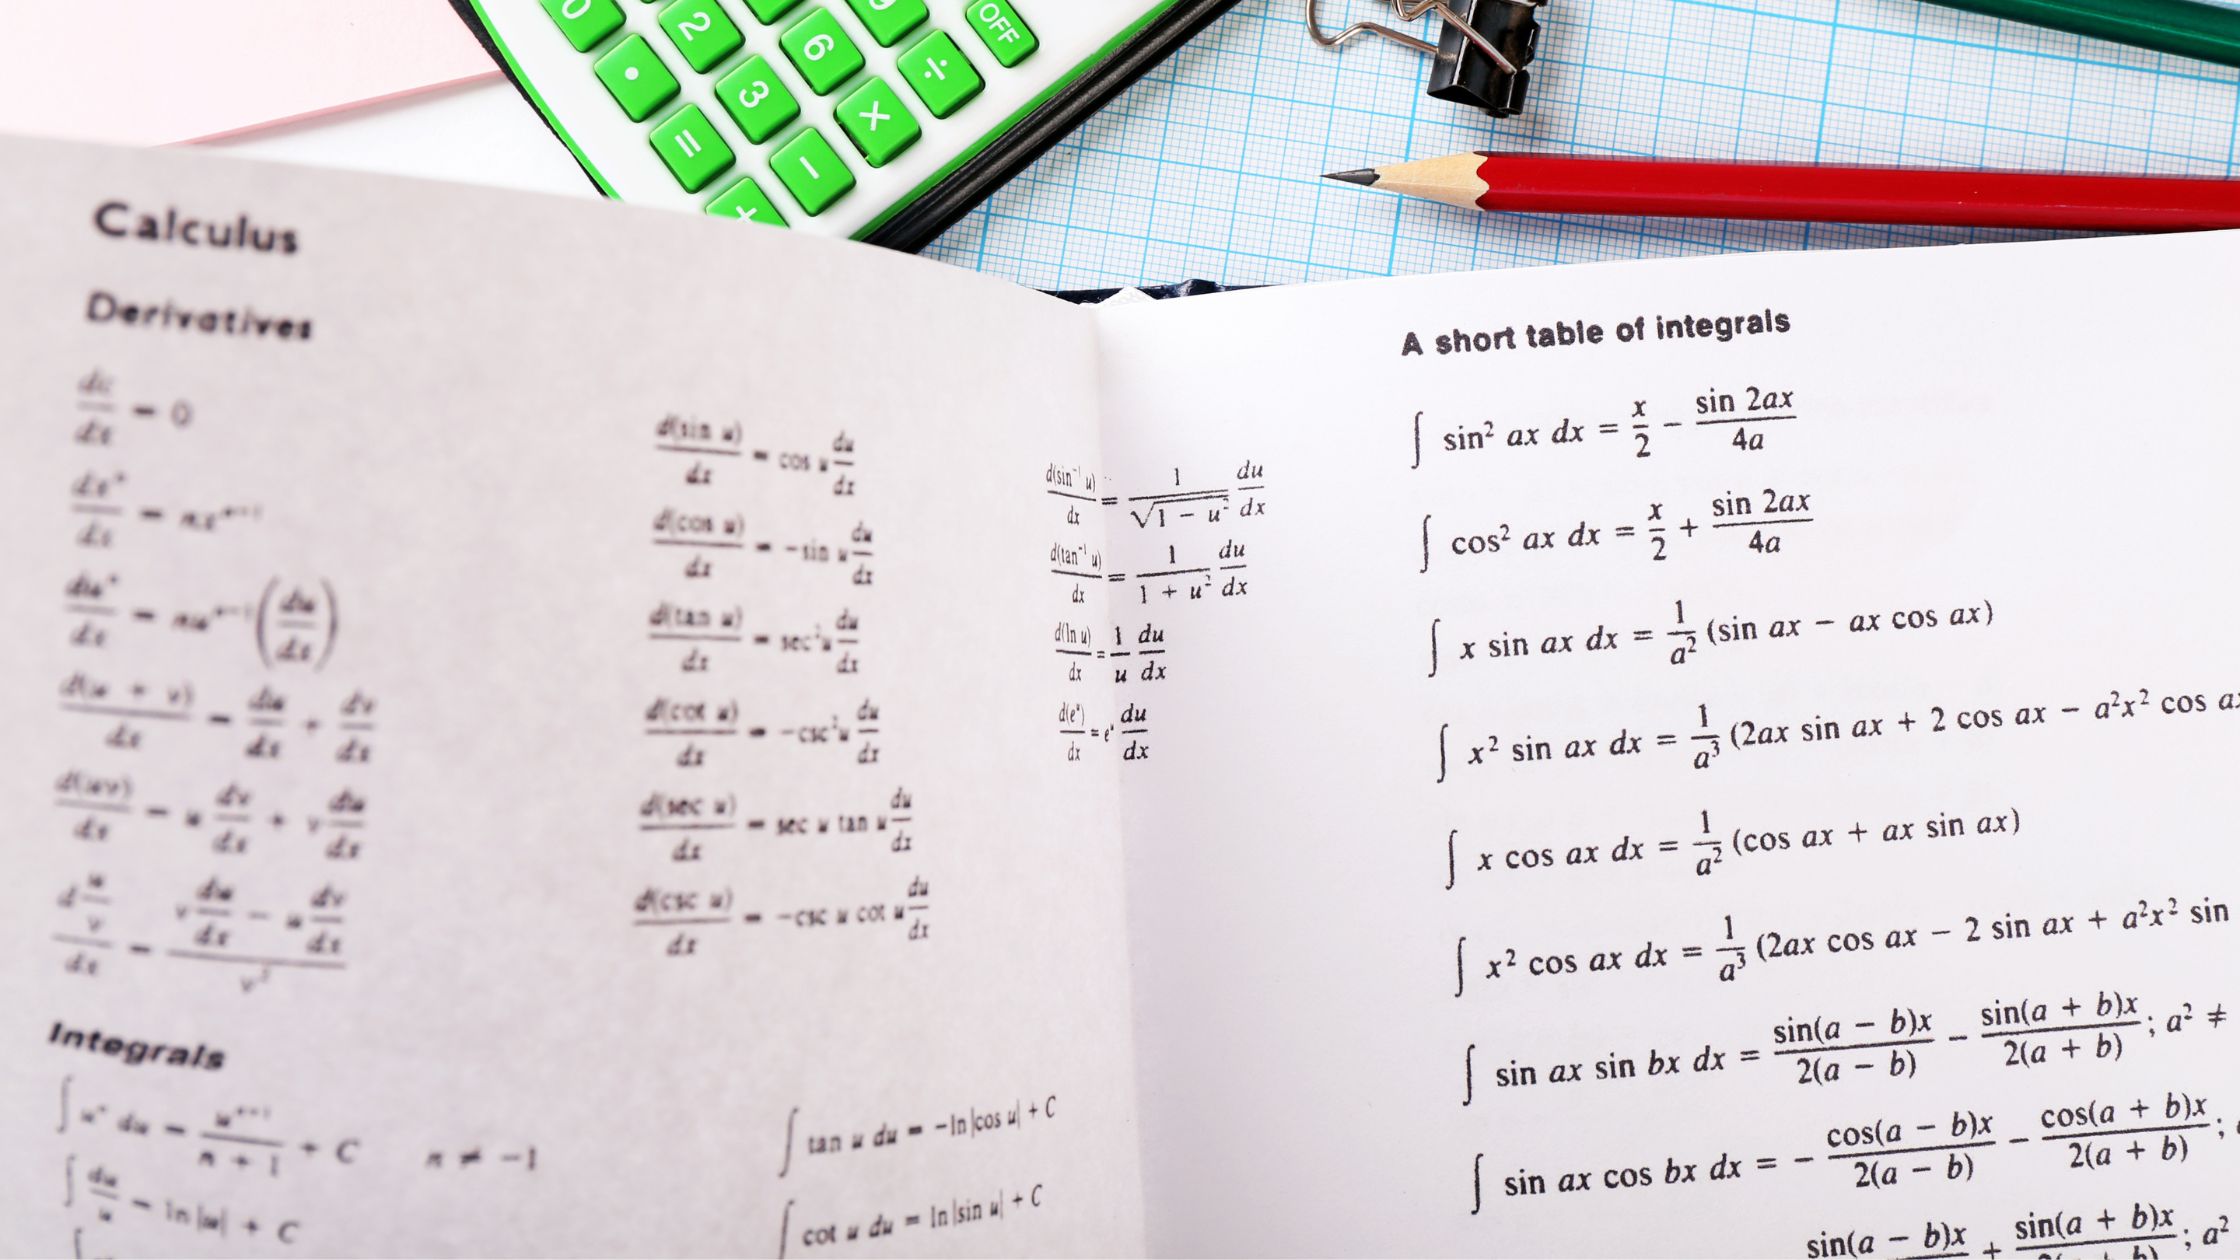 0 2 9 OFF
. 3 6 ÷
= − ×
+
Calculus
Derivatives
dc/dx = 0
dxⁿ/dx = nxⁿ⁻¹
duⁿ/dx = nuⁿ⁻¹(du/dx)
d(u + v)/dx = du/dx + dv/dx
d(uv)/dx = u dv/dx + v du/dx
d(u/v)/dx = (v du/dx − u dv/dx)/v²
d(sin u)/dx = cos u du/dx
d(cos u)/dx = −sin u du/dx
d(tan u)/dx = sec² u du/dx
d(cot u)/dx = −csc² u du/dx
d(sec u)/dx = sec u tan u du/dx
d(csc u)/dx = −csc u cot u du/dx
d(sin⁻¹ u)/dx = 1/√(1 − u²) du/dx
d(tan⁻¹ u)/dx = 1/(1 + u²) du/dx
d(ln u)/dx = 1/u du/dx
d(eᵘ)/dx = eᵘ du/dx
Integrals
∫ uⁿ du = uⁿ⁺¹/(n + 1) + C n ≠ −1
∫ du/u = ln|u| + C
∫ tan u du = −ln|cos u| + C
∫ cot u du = ln|sin u| + C
A short table of integrals
∫ sin² ax dx = x/2 − sin 2ax/4a
∫ cos² ax dx = x/2 + sin 2ax/4a
∫ x sin ax dx = 1/a² (sin ax − ax cos ax)
∫ x² sin ax dx = 1/a³ (2ax sin ax + 2 cos ax − a²x² cos a
∫ x cos ax dx = 1/a² (cos ax + ax sin ax)
∫ x² cos ax dx = 1/a³ (2ax cos ax − 2 sin ax + a²x² sin
∫ sin ax sin bx dx = sin(a − b)x/2(a − b) − sin(a + b)x/2(a + b); a² ≠
∫ sin ax cos bx dx = − cos(a − b)x/2(a − b) − cos(a + b)x/2(a + b);
sin(a − b)x + sin(a + b)x ; a²